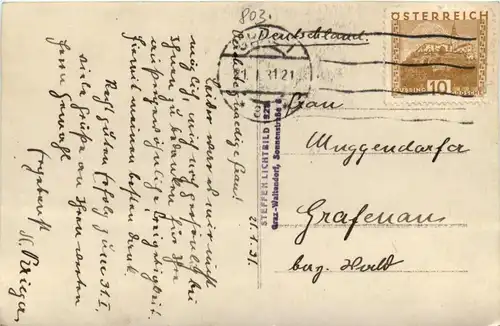 803.
Deutschland.
ÖSTERREICH
GÜSSING
10
31.21
Frau
Muggendorfer
Grafenau
bay. Wald
STEFFEN LICHTBILD 1929
Graz-Waltendorf, Sonnenstraße
21.1.31.
Sehr gnädige Frau!
Leider war es mir nicht
möglich, mich noch persönlich bei
Ihnen zu bedanken für Ihre
außergewöhnliche
hiermit meinen besten Dank
Recht guten Erfolg zum 31.I.
viele Grüße an Ihren werten
Herrn Gemahl
ergebenst